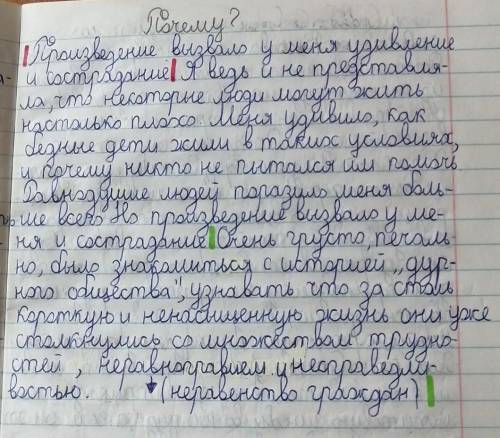 Почему?
Произведение вызвало у меня удивление
и сострадание Я ведь и не представля-
ла, что некоторые люди могут жить
настолько плохо. Меня удивило, как
бедные дети жили в таких условиях,
и почему никто не пытался им помочь
Равнодушие людей поразило меня боль-
ше всего. Но произведение вызвало у ме-
ня и сострадание Очень грустно, печаль-
но, было знакомиться с историей „дур-
ного общества", узнавать что за столь
короткую и ненасыщенную жизнь они уже
столкнулись со множеством трудно-
стей, неравноправием и несправедли-
востью. (неравенство граждан)